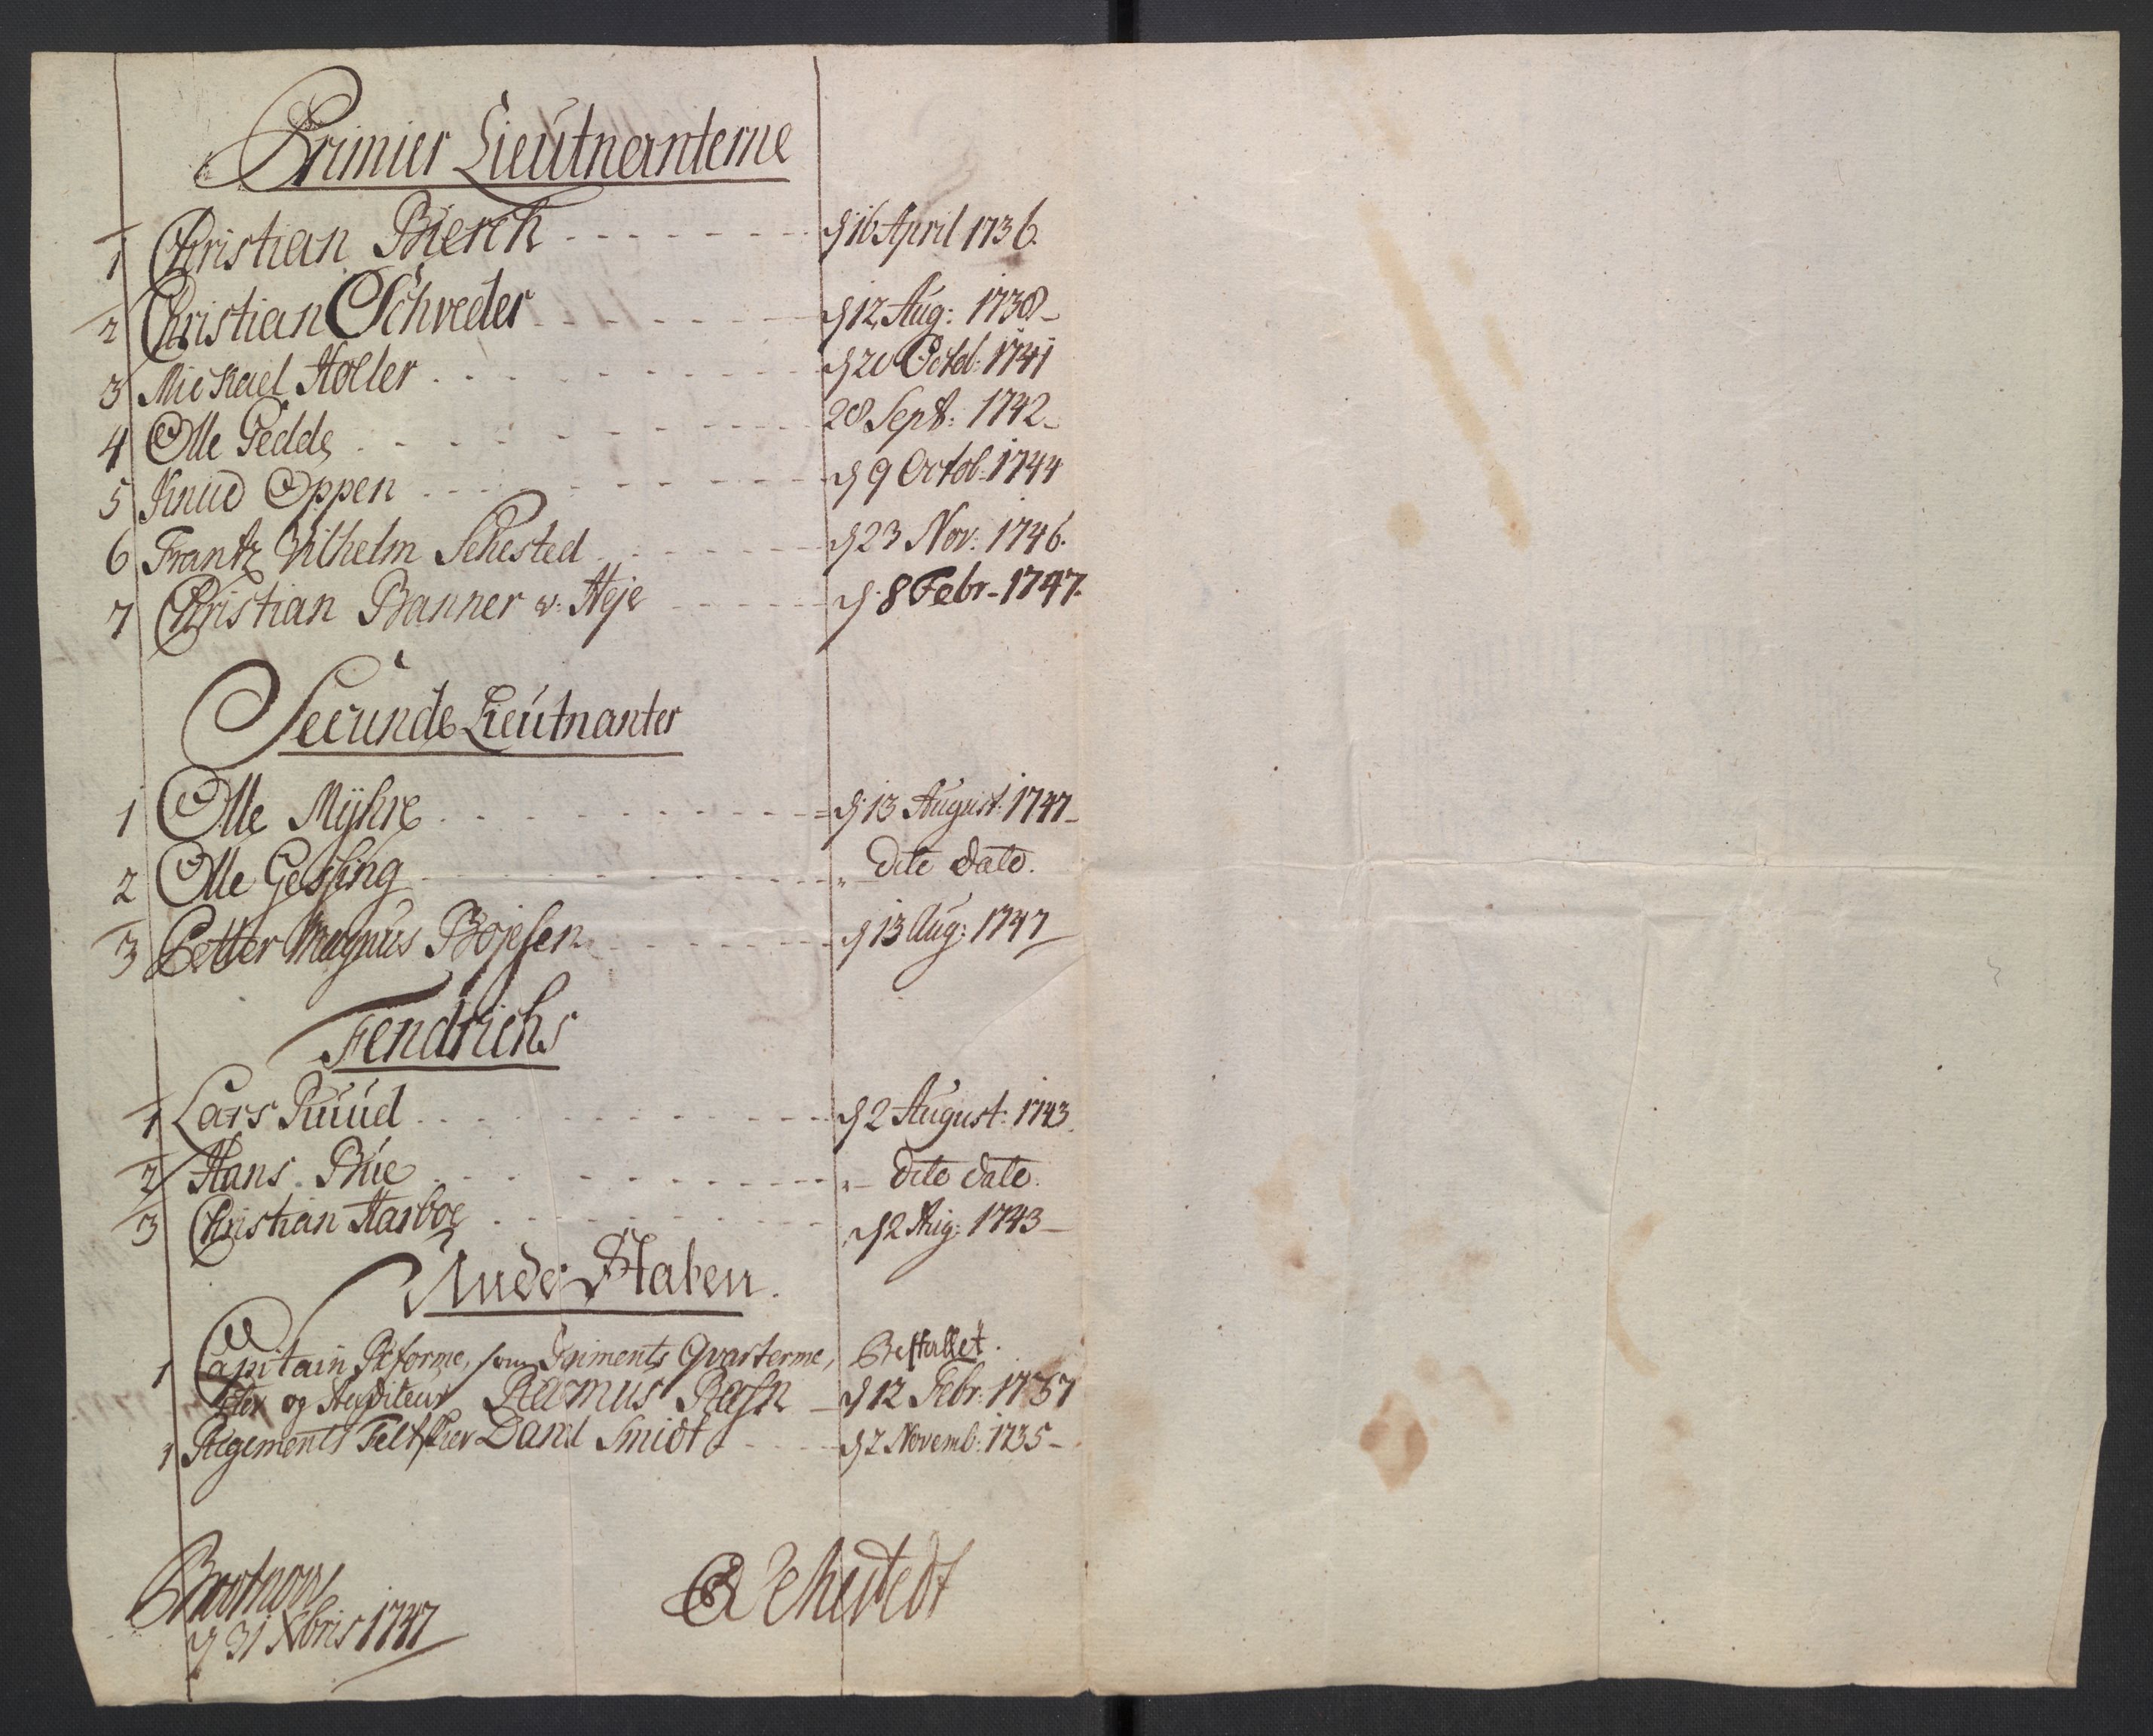 Primier Lieutnanterne
1 Christian Bierch d 16 April 1736.
2 Christian Schrøder d 12 Aug: 1738
3 Michael Holler d 20 Octob: 1741
4 Olle Gedde 28 Sept: 1742
5 Knud Oppen d 9 Octob: 1744
6 Frantz Vilhelm Sehested d 23 Nov: 1746.
7 Christian Banner v: Heje d. 8 Febr. 1747.
Secunde Lieutnanter
1 Olle Mÿhre d 13 August: 1747
2 Olle Gessing dito dato.
3 Petter Magnus Bojesen d 13 Aug: 1747
Fendrichs
1 Lars Ruud d 2 August: 1743
2 Hans Bue dito dato.
3 Christian Harboe d 2 Aug: 1743
Under Staben.
1 Capitain Reforme, som Qvarterme, Bestallet.
ster og Auditeur Rasmus d 12 Febr: 1737
1 Regements Feltskier Danil Smidt d 2 Novemb: 1735
d 31 Xbris 1747